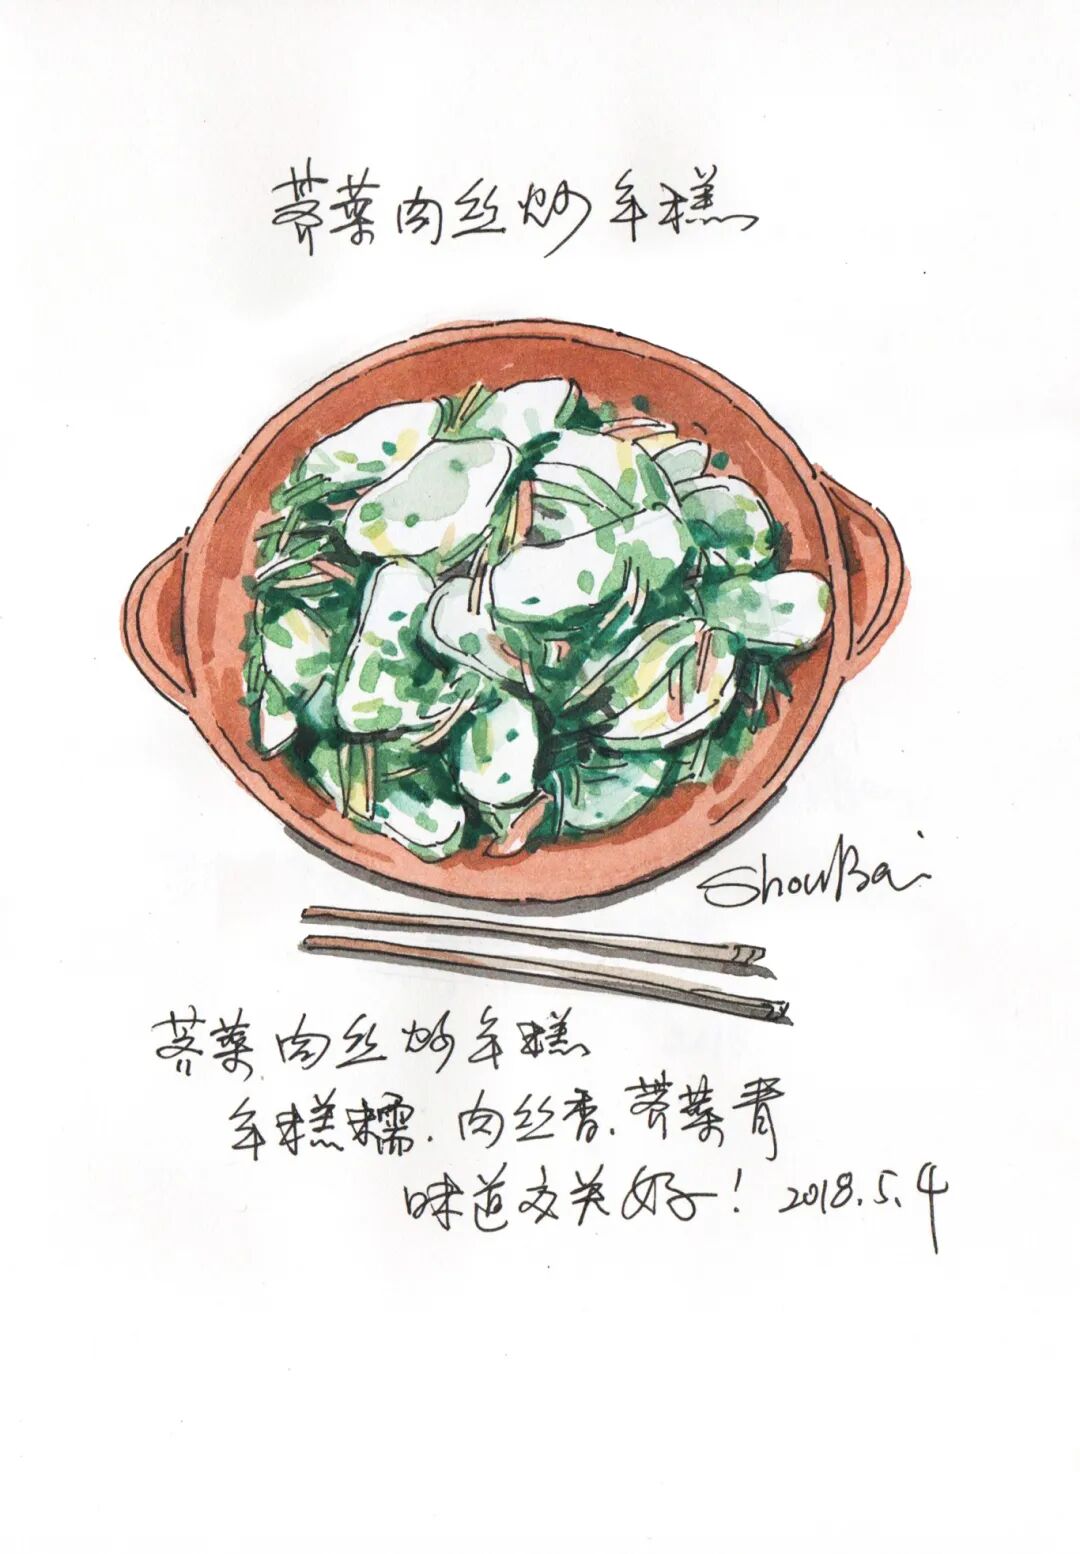 荠菜肉丝炒年糕
ShouBai
荠菜肉丝炒年糕
年糕糯.肉丝香.荠菜青
味道交关好！2018.5.4